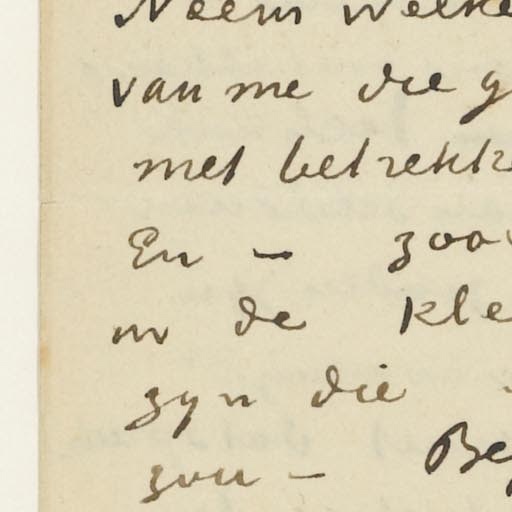 Neem welke
van me die g
met betrekke
En – zoo
in de kle
zyn die
zou – Be